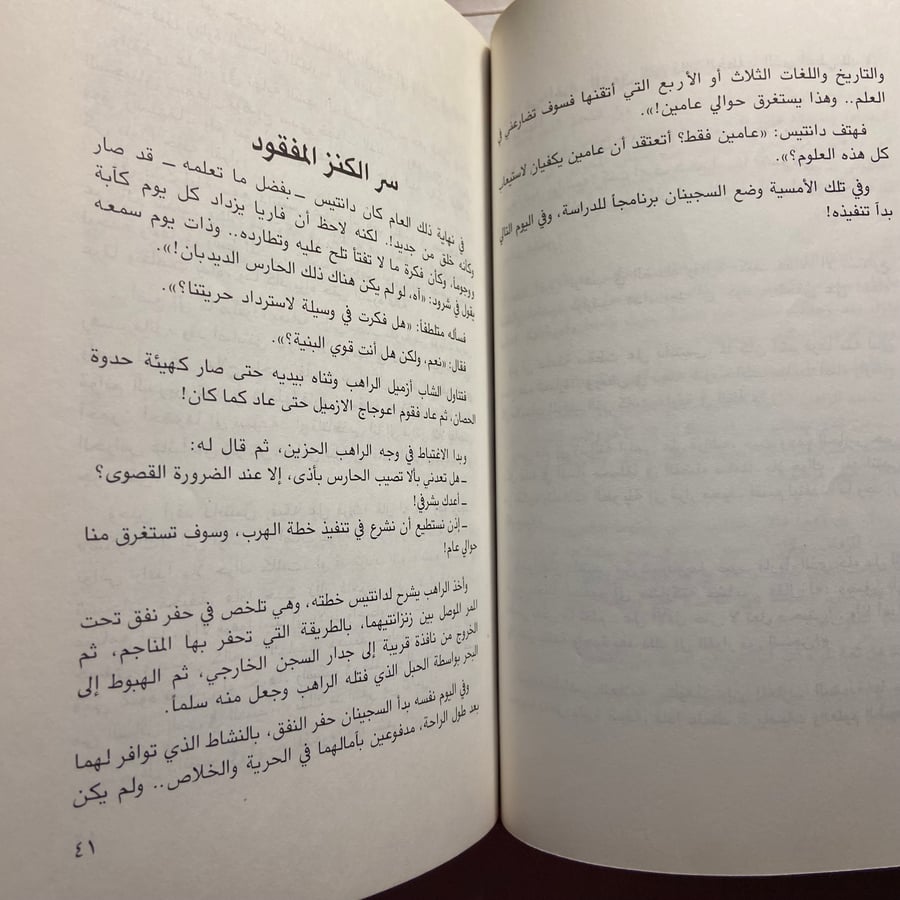 والتاريخ واللغات الثلاث أو الأربع التي أتقنها فسوف تضارعني في
العلم.. وهذا يستغرق حوالي عامين!».
فهتف دانتيس: «عامين فقط؟ أتعتقد أن عامين يكفيان لاستيعاب
كل هذه العلوم؟».
وفي تلك الأمسية وضع السجينان برنامجاً للدراسة، وفي اليوم التالي
بدأ تنفيذه!
سر الكنز المفقود
في نهاية ذلك العام كان دانتيس ـ بفضل ما تعلمه ـ قد صار
وكأنه خلق من جديد!. لكنه لاحظ أن فاريا يزداد كل يوم كآبة
ووجوما، وكأن فكرة ما لا تفتأ تلح عليه وتطارده.. وذات يوم سمعه
يقول في شرود: «آه، لو لم يكن هناك ذلك الحارس الديدبان!».
فسأله متلطفاً: «هل فكرت في وسيلة لاسترداد حريتنا؟».
فقال: «نعم، ولكن هل أنت قوي البنية؟».
فتناول الشاب أزميل الراهب وثناه بيديه حتى صار كهيئة حدوة
الحصان، ثم عاد فقوم اعوجاج الازميل حتى عاد كما كان!
وبدا الاغتباط في وجه الراهب الحزين، ثم قال له:
ـ هل تعدني بألا تصيب الحارس بأذى، إلا عند الضرورة القصوى؟
ـ أعدك بشرفي!
ـ إذن نستطيع أن نشرع في تنفيذ خطة الهرب، وسوف تستغرق منا
حوالي عام!
وأخذ الراهب يشرح لدانتيس خطته، وهي تلخص في حفر نفق تحت
الممر الموصل بين زنزانتيهما، بالطريقة التي تحفر بها المناجم، ثم
الخروج من نافذة قريبة إلى جدار السجن الخارجي، ثم الهبوط إلى
البحر بواسطة الحبل الذي فتله الراهب وجعل منه سلماً.
وفي اليوم نفسه بدأ السجينان حفر النفق، بالنشاط الذي توافر لهما
بعد طول الراحة، مدفوعين بآمالهما في الحرية والخلاص.. ولم يكن
٤١